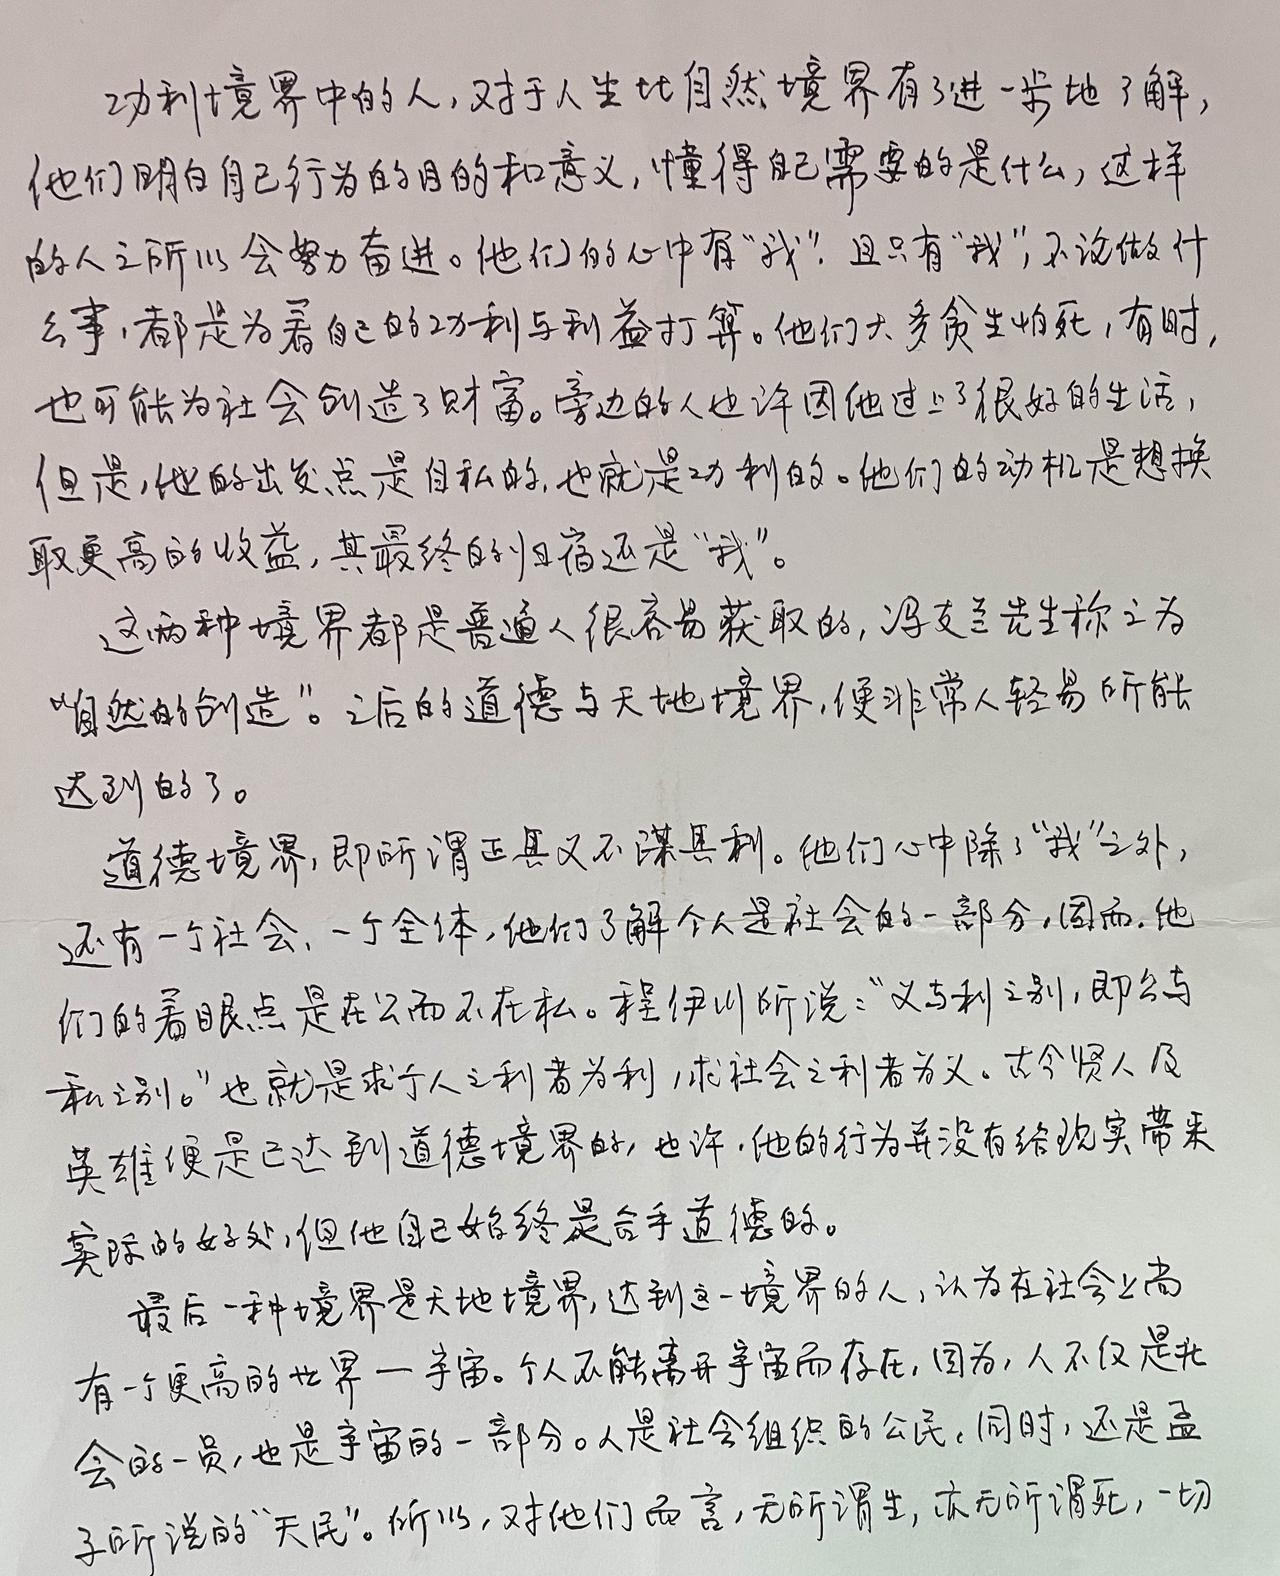 功利境界中的人，对于人生比自然境界有了进一步地了解，
他们明白自己行为的目的和意义，懂得自己需要的是什么，这样
的人之所以会努力奋进。他们的心中有“我”，且只有“我”，不论做什
么事，都是为着自己的功利与利益打算。他们大多贪生怕死，有时，
也可能为社会创造了财富。旁边的人也许因他过上了很好的生活，
但是，他的出发点是自私的，也就是功利的。他们的动机是想换
取更高的收益，其最终的归宿还是“我”。
这两种境界都是普通人很容易获取的，冯友兰先生称之为
“自然的创造”。之后的道德与天地境界，便非常人轻易所能
达到的了。
道德境界，即所谓正其义不谋其利。他们心中除了“我”之外，
还有一个社会、一个全体，他们了解个人是社会的一部分，因而，他
们的着眼点是在公而不在私。程伊川所说：“义与利之别，即公与
私之别。”也就是求个人之利者为利，求社会之利者为义。古今贤人及
英雄便是已达到道德境界的，也许，他的行为并没有给现实带来
实际的好处，但他自己始终是合乎道德的。
最后一种境界是天地境界，达到这一境界的人，认为在社会上尚
有一个更高的世界一宇宙。个人不能离开宇宙而存在，因为，人不仅是社
会的一员，也是宇宙的一部分。人是社会组织的公民，同时，还是孟
子所说的“天民”。所以，对他们而言，无所谓生，亦无所谓死，一切